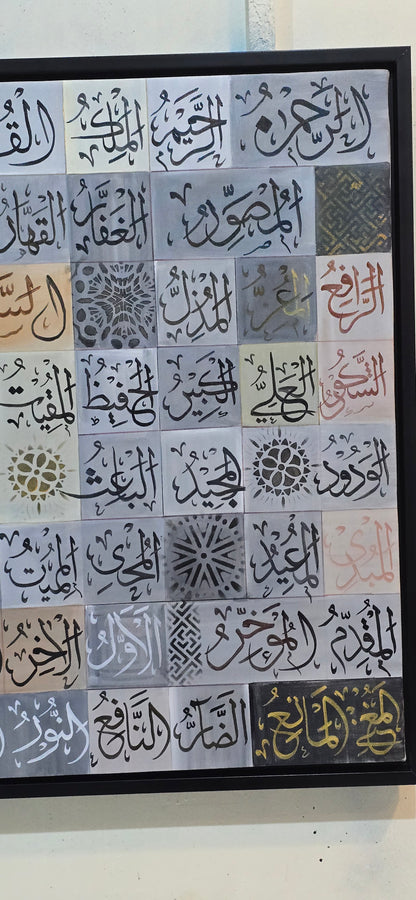 الرحمن الرحيم الملك
المصور الغفار القهار
الرافع المعز المذل
الشكور العلي الكبير الحفيظ المقيت
الودود المجيد الباعث
المبدئ المعيد المحيي المميت
المقدم المؤخر الأول الآخر
المغني المانع الضار النافع النور